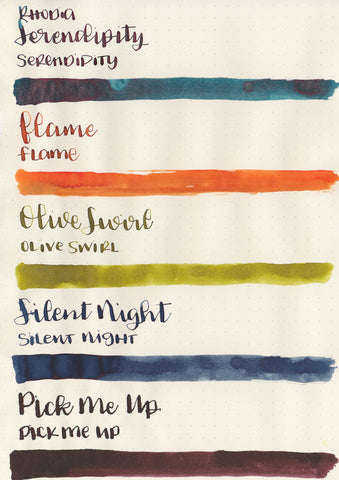 RHODIA
Serendipity
SERENDIPITY
flame
FLAME
Olive Swirl
OLIVE SWIRL
Silent Night
SILENT NIGHT
Pick Me Up
PICK ME UP